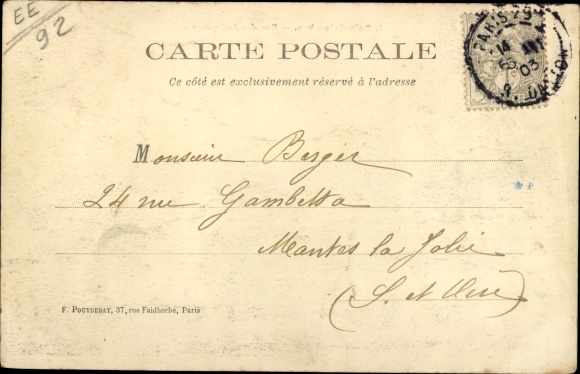 EE
92
PARIS 29
14
03
R. DANTON
CARTE POSTALE
Ce côté est exclusivement réservé à l'adresse
Monsieur Berger
24 rue Gambetta
Mantes la Jolie
(S. et Oise)
F. POUYDEBAT, 37, rue Faidherbe, Paris